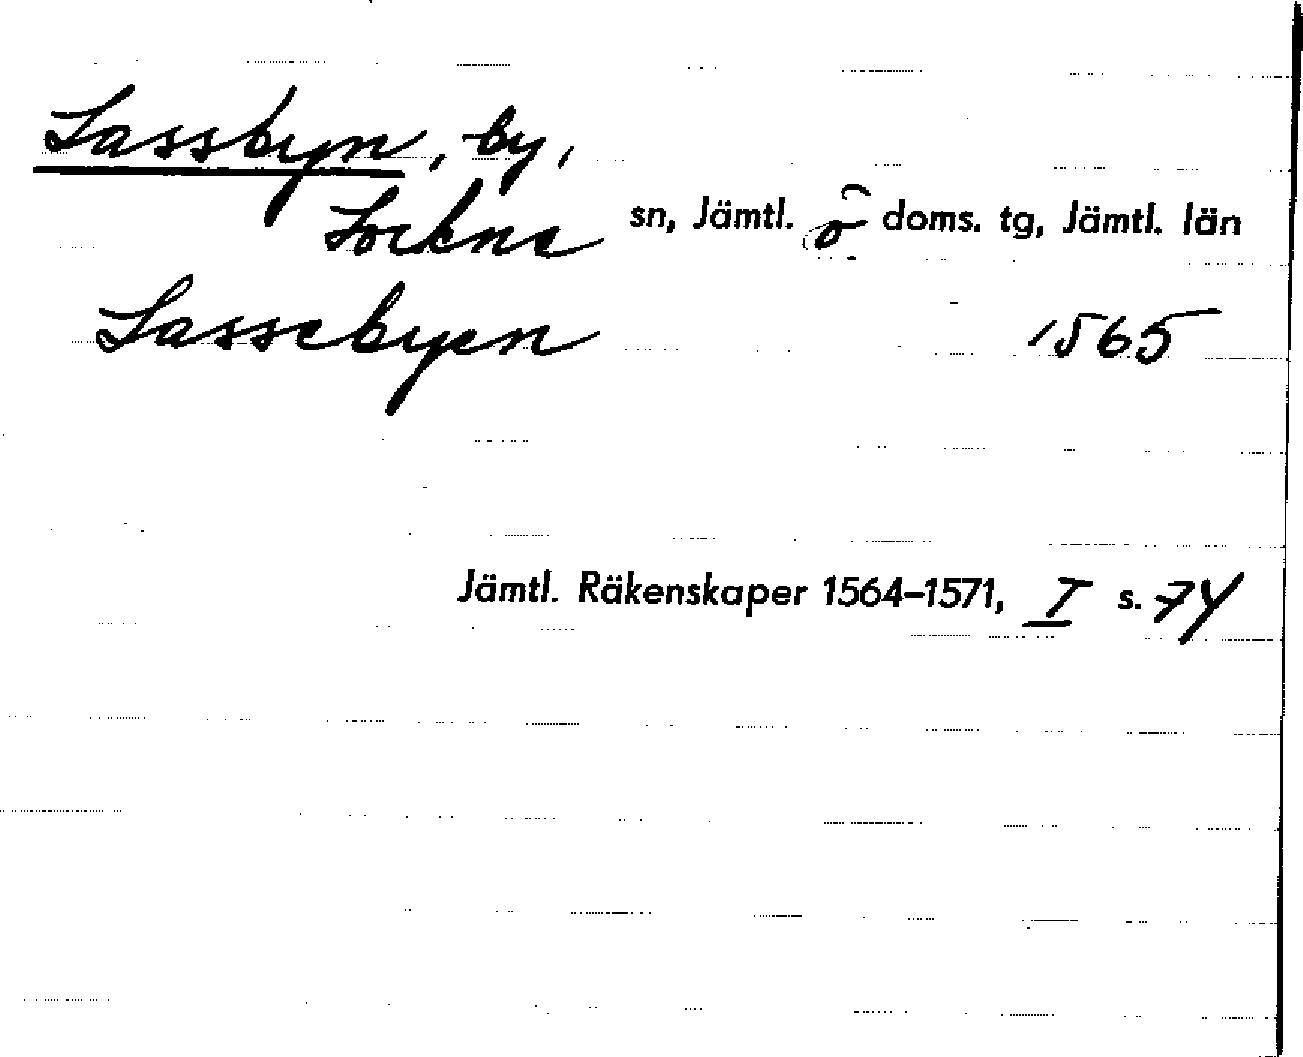 Lassbyn, by,
Lockne sn, Jämtl. ö doms. tg, Jämtl. län
Lassebyen 1565
Jämtl. Räkenskaper 1564–1571, I s. 74